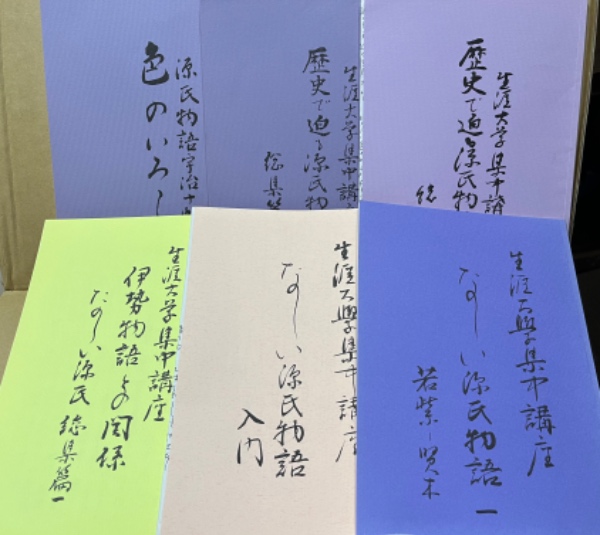 源氏物語宇治十
色のいろ
生涯大学集中講
歴史で迫る源氏物
総集篇
生涯大学集中講
歴史で迫る源氏物
総
生涯大学集中講座
伊勢物語との関係
たのしい源氏 総集篇一
生涯大學集中講座
たのしい源氏物語
入門
生涯大學集中講座
たのしい源氏物語 一
若紫―賢木